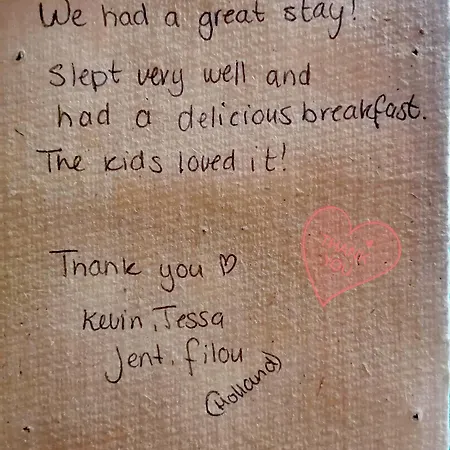 We had a great stay!
Slept very well and
had a delicious breakfast.
The kids loved it!
Thank you ♡
Kevin, Jessa
Jent, filou
(Holland)